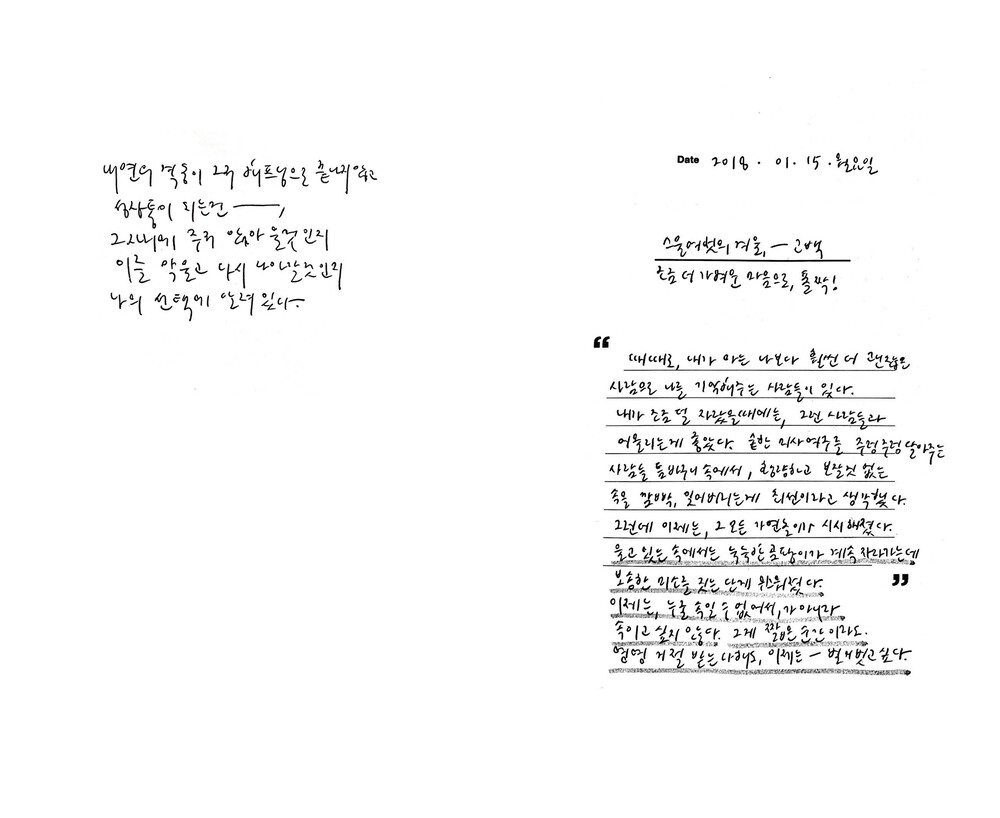 내면의 격동이 그저 해프닝으로 끝나지 않고
성장통이 되는건 ——,
그자리에 주저 앉아 울것인지
이를 악물고 다시 나아갈것인지
나의 선택에 달려 있다.
Date 2018. 01. 15. 월요일
스물여섯의 겨울, — 고백
조금 더 가벼운 마음으로, 폴짝!
“
때때로, 내가 아는 나보다 훨씬 더 괜찮은
사람으로 나를 기억해주는 사람들이 있다.
내가 조금 덜 자랐을때에는, 그런 사람들과
어울리는게 좋았다. 숱한 미사여구를 주렁주렁 달아주는
사람들 틈바구니 속에서, 황량하고 보잘것 없는
속을 깜빡, 잊어버리는게 최선이라고 생각했다.
그런데 이제는, 그 모든 가면놀이가 시시해졌다.
울고 있는 속에서는 눅눅한 곰팡이가 계속 자라가는데
보송한 미소를 짓는 단게 우스워졌다.
”
이제는, 누굴 속일 수 없어서,가 아니라
속이고 싶지 않다. 그게 짧은 순간이라도.
설령 거절 받는다해도, 이제는 — 벌거벗고 싶다.